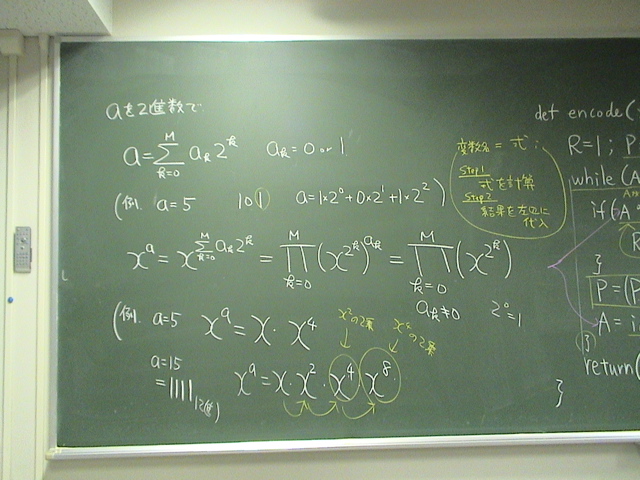 aを2進数で
a = Σ_{k=0}^{M} a_k 2^k   a_k = 0 or 1
(例. a=5   101   a=1×2^0+0×2^1+1×2^2)
x^a = x^{Σ_{k=0}^{M} a_k 2^k} = ∏_{k=0}^{M} (x^{2^k})^{a_k} = ∏_{k=0}^{M} (x^{2^k})
a_k≠0   2^0=1
(例. a=5   x^a = x・x^4
x^2の2乗   x^4の2乗
a=15   x^a = x・x^2・x^4・x^8
=1111
変数名 = 式 :
Step1
式を計算
Step2
結果を左辺に
代入
def encode(
R=1 ; P
while (A
if (A
R
}
P = (P
A = i
}
return(
}